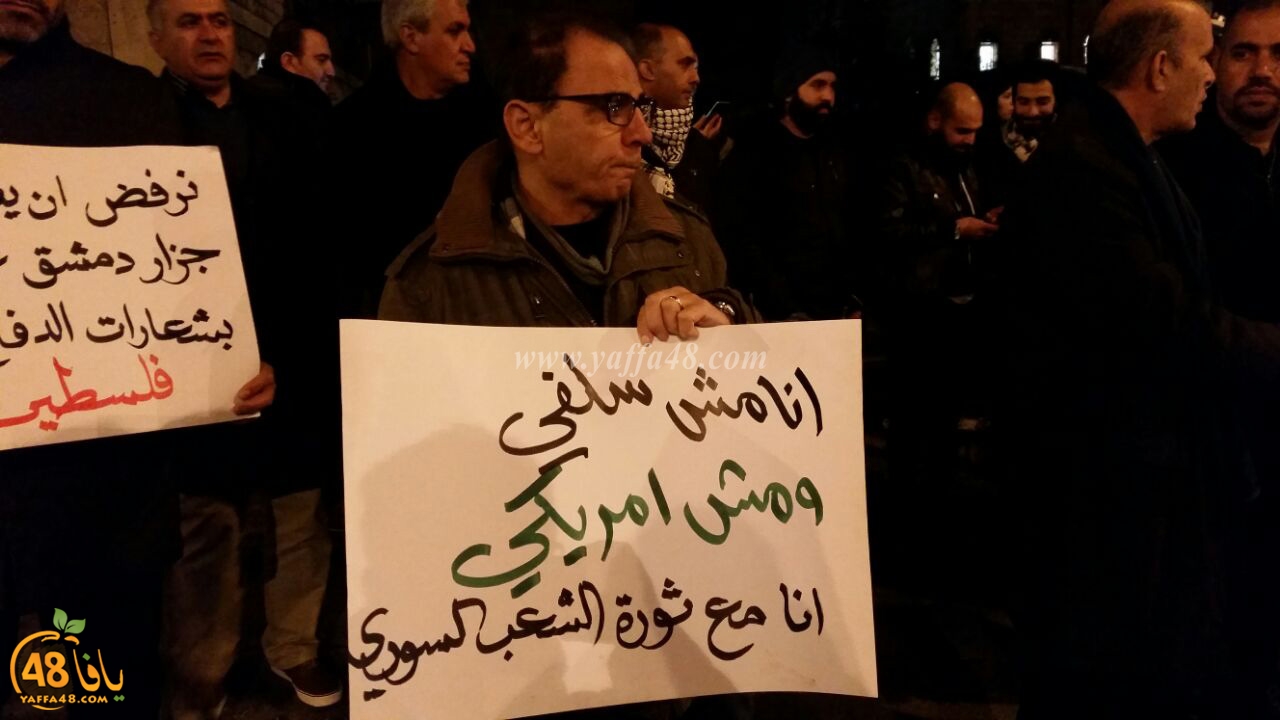 نرفض ان
جزار دمشق
بشعارات
فلسطين
www.yaffa48.com
انا مش سلفي
ومش امريكي
انا مع ثورة الشعب السوري
يافا 48
YAFFA48.COM